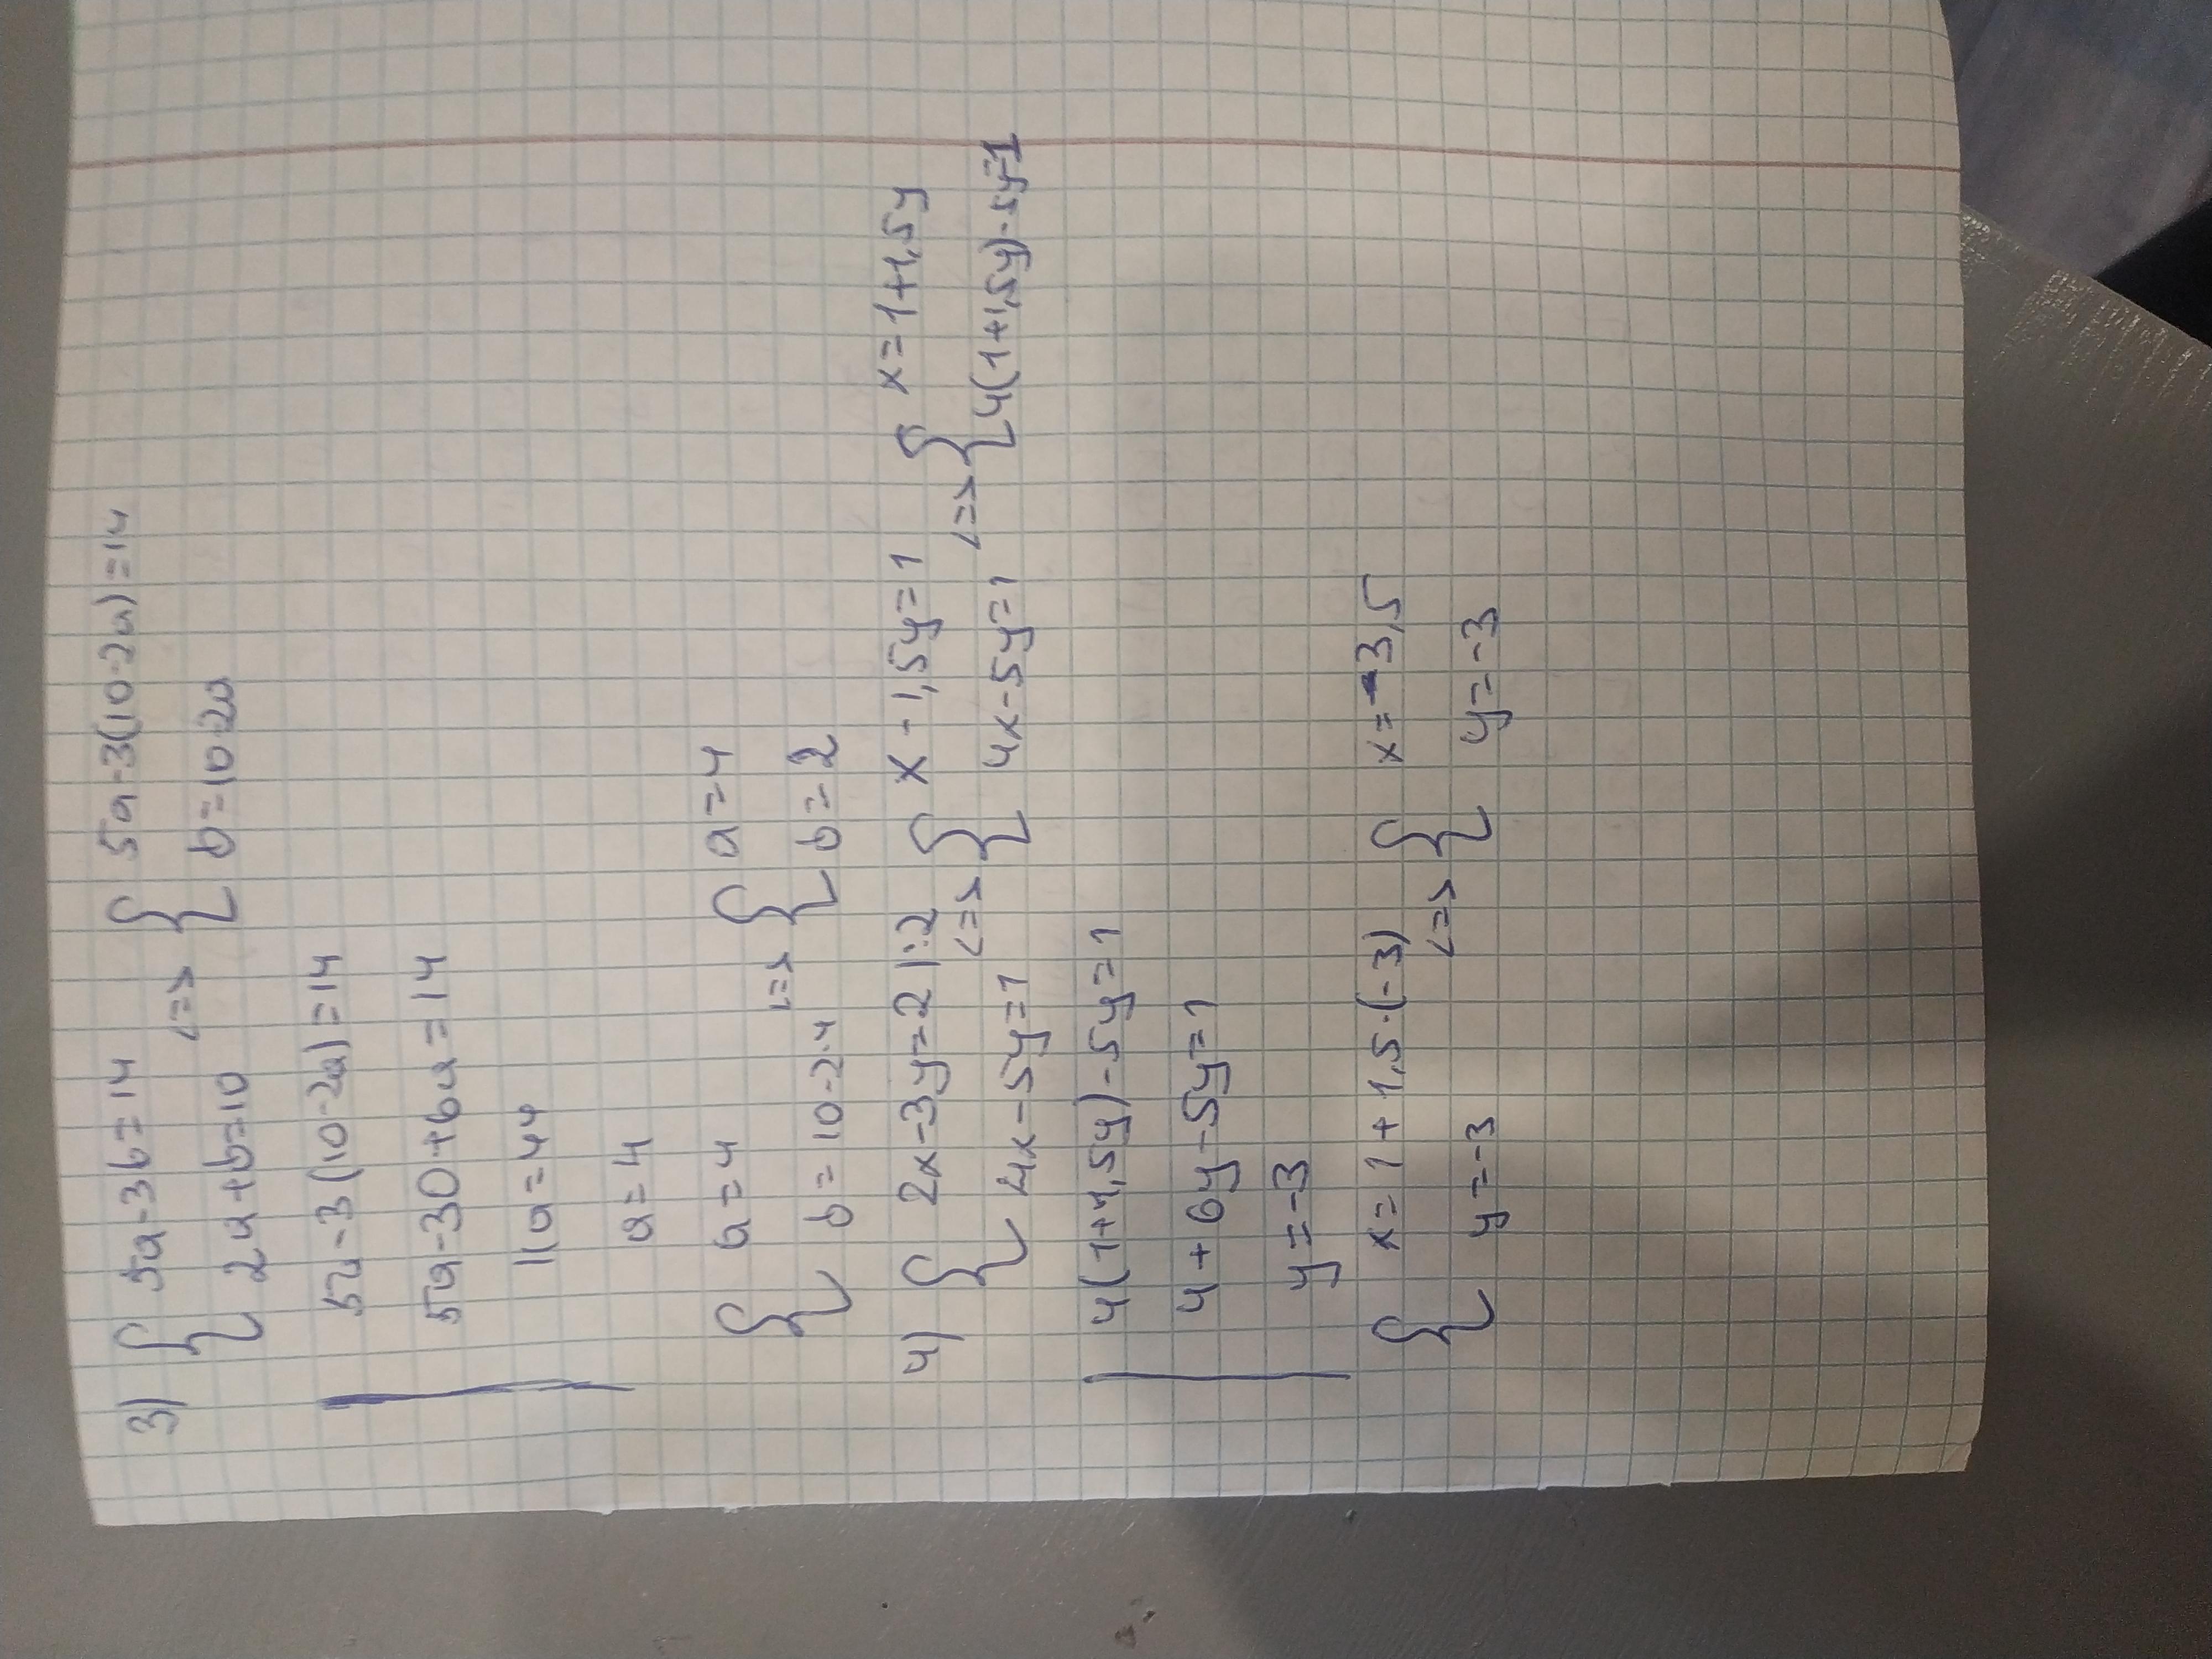 3) { 5a-3b=14 <=> { 5a-3(10-2a)=14
2a+b=10 b=10-2a
5a-3(10-2a)=14
5a-30+6a=14
11a=44
a=4
{ a=4 <=> { a=4
b=10-2·4 b=2
4) { 2x-3y=2 |:2 <=> { x-1,5y=1 <=> { x=1+1,5y
4x-5y=1 4x-5y=1 4(1+1,5y)-5y=1
4(1+1,5y)-5y=1
4+6y-5y=1
y=-3
{ x=1+1,5·(-3) <=> { x=-3,5
y=-3 y=-3